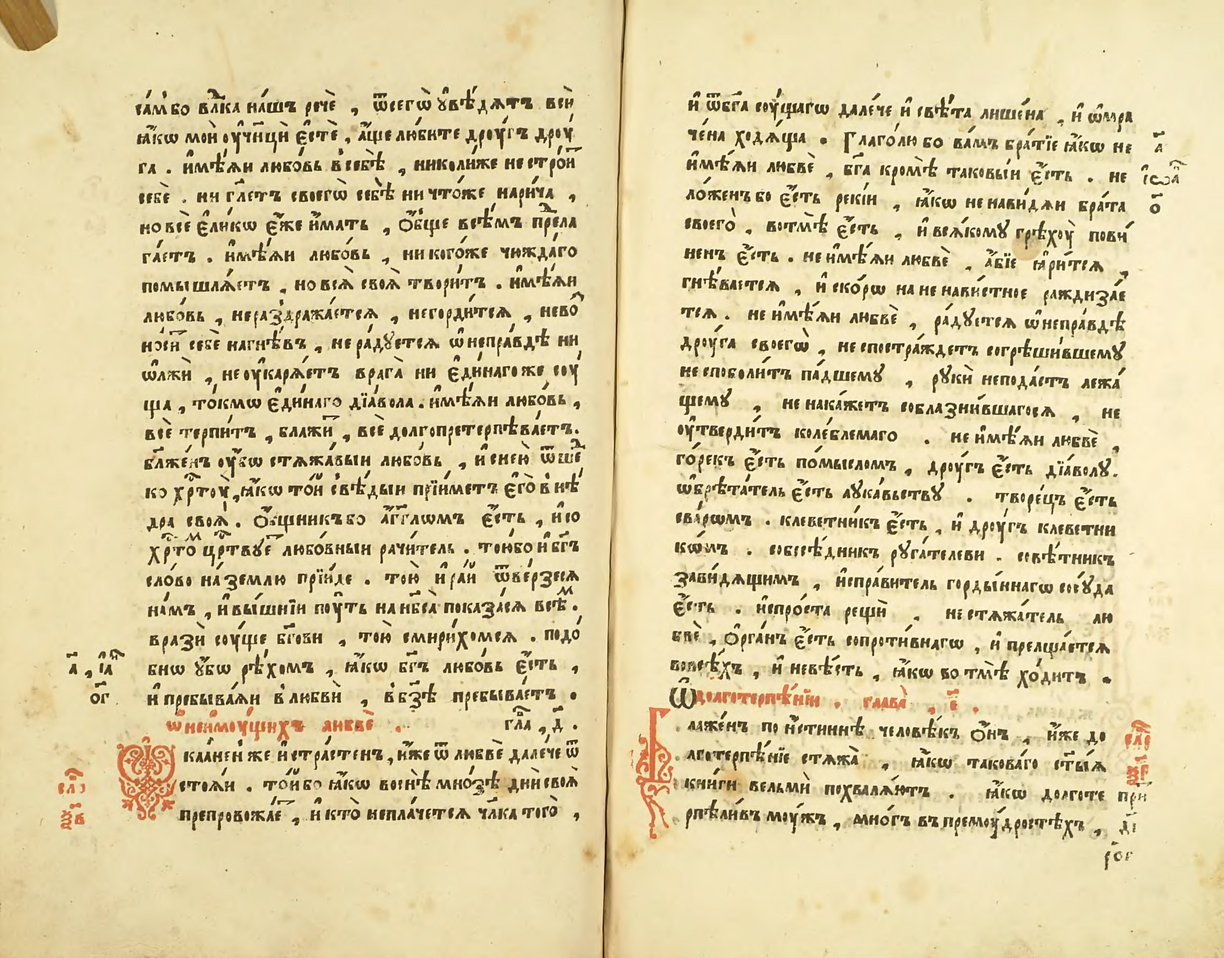 са́мбо влⷣка на́шъ речѐ , ѿсегѡ̀ ᲂувѣ́дѧтъ всѝ
ꙗ́кѡ мои ᲂучн҃цы̀ є҆стѐ , а҆́ще лю́бите дроу́гъ дроу́
га . и҆мѣ́ѧи любо́вь в̾себѣ̀ , николи́же не стро́и
себѐ . ни гл҃етъ своегѡ̀ себѣ̀ ничто́же нарича̀ ,
но всѐ є҆ли́кѡ є҆́же и҆́мать , ѻ҆́бще всѣ́мъ прⷣела
га́етъ . и҆мѣ́ѧи любо́вь , никого́же чюжда́го
помышлѧ́етъ , но всѧ̀ своѧ̀ твори́тъ . и҆мѣ́ѧи
любо́вь , нераздража́етсѧ , негорди́тсѧ , нево́
но́си себѐ нагнѣ́въ , нера́дуетсѧ ѡ҆непра́вдѣ ни
ѡ҆лжѝ , не ᲂукарѧ́етъ врага̀ ни є҆ди́нагоже соу́
ща , то́кмѡ є҆ди́наго дїа́вола . и҆мѣ́ѧи любо́вь ,
всѐ терпи́тъ , блажи́ , всѐ долгопретерпѣва́етъ .
бл҃же́нъ ᲂу҆́бѡ стѧжа́выи любо́вь , и҆ снею̀ ѿше́
ко хрⷭ҇тоу̀ , ꙗ҆́кѡ то́и свѣ́дыи прїи́метъ є҆го̀ в нѣ́
дра своѧ̀ . ѻ҆́бщникъ бо а҆́гг҃лѡмъ є҆́сть , и҆ со
хрⷭ҇то́ цр҃твꙋе̑ любо́вныи рачи́тель . то́ю бо и҆ бг҃ъ
сло́во на́землю прїи́де . то́ю и҆ ра́и ѿве́рзесѧ
на́мъ , и҆ вы́шнїи поу́ть на нб҃са̀ показа́сѧ всѣⷨ .
вразѝ соу́ще бг҃ови , то́ю смири́хомсѧ . подо́
бнѡ ᲂу҆́бѡ рѣ́хомъ , ꙗ҆́кѡ бг҃ъ любо́вь є҆́сть ,
и҆ пребыва́ѧи в̾любвѝ , в̾бз҃ѣ пребыва́етъ .
а҃ , і҆ѡⷩ҇
ог҃
ѡ҆неимоу́щихъ любвѐ . гла̀ , д҃ .
каѧ́ненже и҆ стра́стенъ , и҆́же ѿ любвѐ дале́че ѿ
стоѧ́и . то́и бо ꙗ҆́кѡ во снѣ̀ мно́зѣ дни̑ своѧ̀
препровожа́е , и҆ кто̀ непла́четсѧ чл҃ка того̀ ,
сло
и҆ ѿбг҃а соу́щагѡ дале́че и҆ свѣ́та лише́на , и҆ ѡ҆мра
че́на ходѧ́ща . Глаго́лю бо ва́мъ бра́тїе ꙗ҆́кѡ не
и҆мѣ́ѧи любвѐ , бг҃а кромѣ̀ таковы́и є҆́сть . не
ло́женъ бо є҆́сть реки́и , ꙗ҆́кѡ не нави́дѧи бра́та
своего̀ . во тмѣ̀ є҆́сть , и҆ всѧ́кому грѣхоу̀ пови́
ненъ є҆́сть . не и҆мѣ́ѧи любвѐ , а҆́бїе ꙗ҆ри́тсѧ ,
гнѣ́ваетсѧ , и҆ ско́рѡ на не на́вистное раждиза́е
тсѧ . не и҆мѣ́ѧи любвѐ , ра́дуетсѧ ѡ҆непра́вдѣ
дроу́га своегѡ̀ , не спостра́ждетъ согрѣши́вшемꙋ
не споболи́тъ па́дшемꙋ , рꙋкѝ непода́стъ лежа́
щемꙋ , не нака́жетъ соблазни́вшагосѧ , не
ᲂутверди́тъ коле́блемаго . не и҆мѣ́ѧи любвѐ ,
го́рекъ є҆́сть по́мысломъ , дроу́гъ є҆́сть дїа́волꙋ .
ѡ҆брѣта́тель є҆́сть лꙋка́вьствꙋ . творе́цъ є҆́сть
сва́рѡмъ . клеветни́къ є҆́сть , и҆ дроу́гъ клеветни
кѡ́мъ . собесѣ́дникъ рꙋга́телеви . совѣ́тникъ
зави́дѧщимъ , и҆спра́витель горды́ннагѡ сосꙋ́да
є҆́сть . и҆ про́ста рещѝ . не стѧжа́тель лю
бвѐ , ѻ҆рга́нъ є҆́сть сопроти́внагѡ , и҆ прелща́етсѧ
во всѣ́хъ , и҆ невѣ́сть , ꙗ҆́кѡ во тмѣ̀ хо́дитъ .
а҃
і҆ѡⷩ҇а
о҃
Ѿдолготерпѣ́нїи . глава̀ , є҃ .
лаже́нъ по и҆́стиннѣ человѣ́къ ѻ҆́нъ , и҆́же до
лготерпѣ́нїе стѧжа̀ , ꙗ҆́кѡ такова́го ст҃ы́ѧ
кни́ги вельмѝ похвалѧ́ютъ . ꙗ҆́кѡ долготе
рпѣли́въ моу́жъ , мно́гъ въ премоу́дростѣхъ ,
сло
при